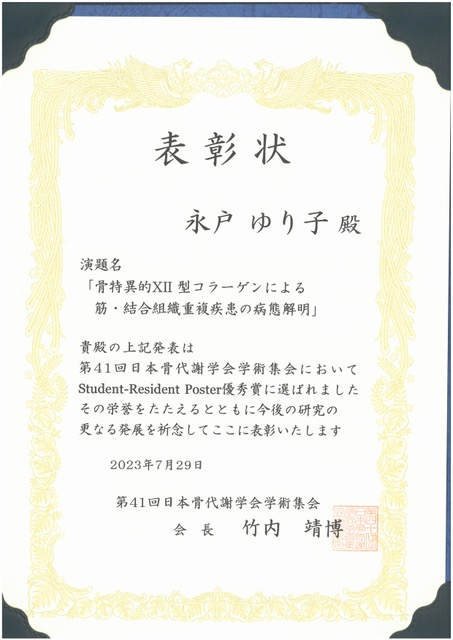 表彰状
永戸 ゆり子 殿
演題名
「骨特異的XII 型コラーゲンによる
筋・結合組織重複疾患の病態解明」
貴殿の上記発表は
第41回日本骨代謝学会学術集会において
Student-Resident Poster優秀賞に選ばれました
その栄誉をたたえるとともに今後の研究の
更なる発展を祈念してここに表彰いたします
2023年7月29日
第41回日本骨代謝学会学術集会
会 長 竹内 靖博